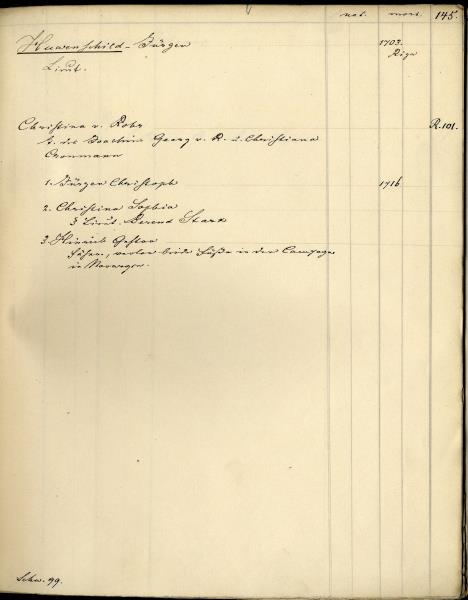 nat. mort. 145.
Hauenschild - Jürgen 1703.
Riga
Lieut.
Christina v. Rohr R.101.
T. des Joachim Georg v. R. u. Christiana
Cronmann
1. Jürgen Christoph 1716
2. Christina Sophia
Lieut. Berend Stark
3. Hinrich Gustav
Fähnr., verlor beide Füße in der Campagne
in Norwegen.
Schw. 99.